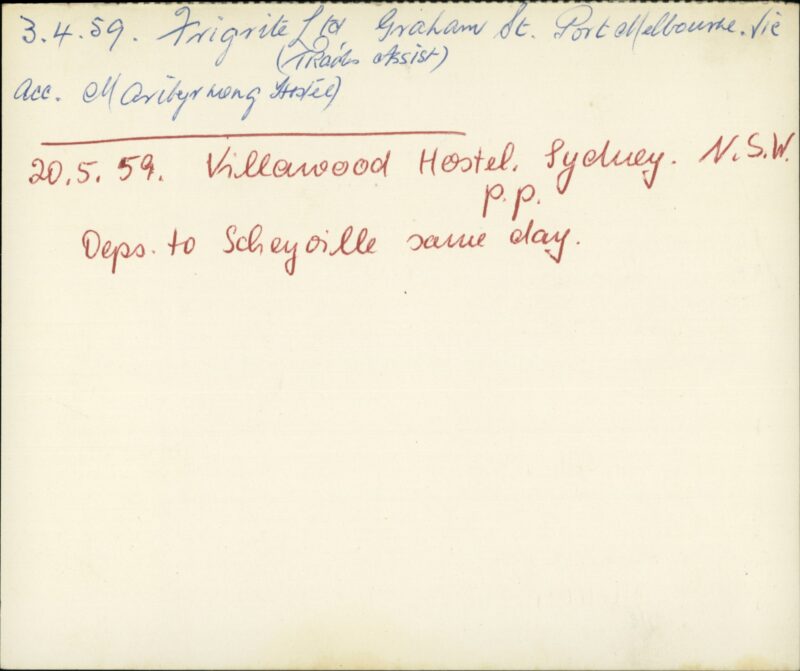 3.4.59. Frigrite Ltd Graham St. Port Melbourne. Vic
(Trades Assist)
Acc. Maribyrnong Hostel)
20.5.59. Villawood Hostel, Sydney. N.S.W.
p.p.
Deps. to Scheyville same day.